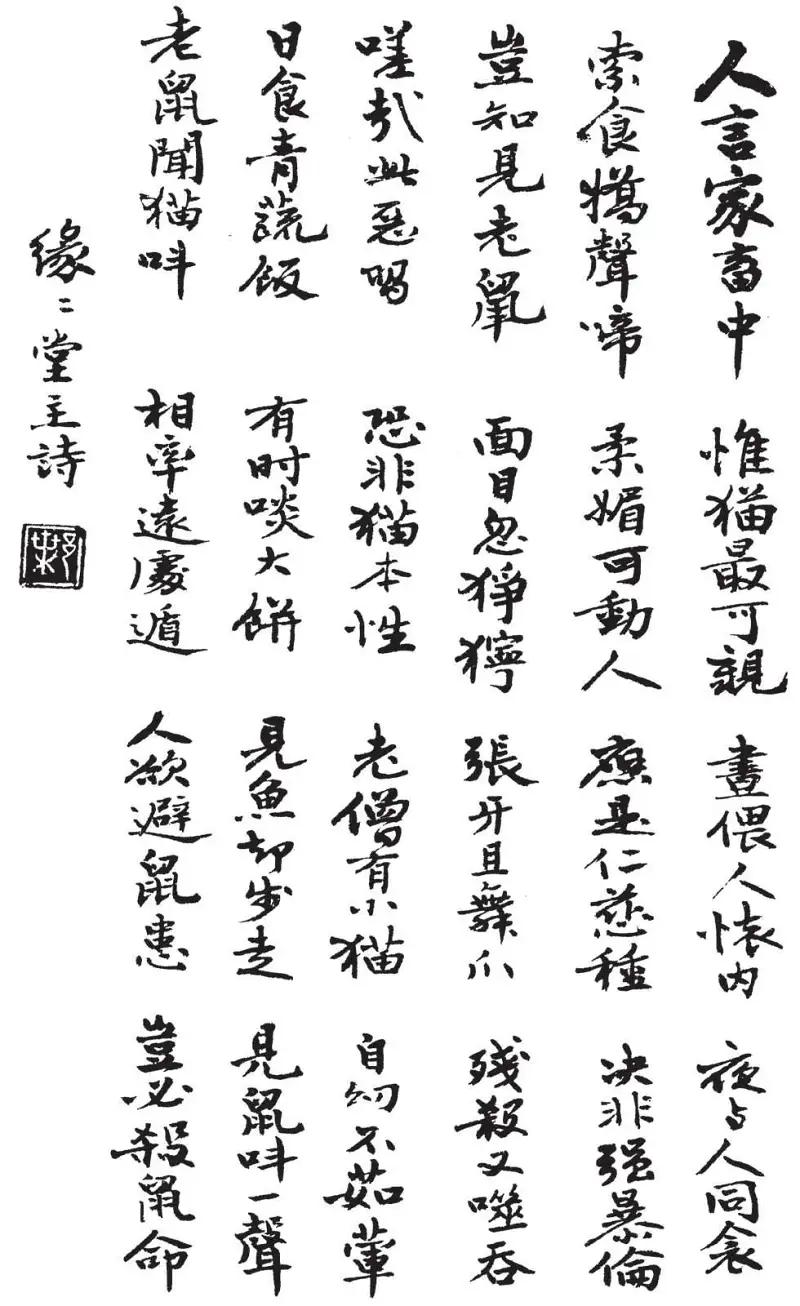 人言家畜中 惟猫最可親 晝偎人懷內 夜与人同衾
索食嬌聲啼 柔媚可動人 應是仁慈種 决非强暴倫
豈知見老鼠 面目忽猙獰 張牙且舞爪 殘殺又噬吞
嗟哉此惡 恐非猫本性 老僧有小猫 自幼不茹葷
日食青蔬飯 有时啖大餅 見魚却步走 見鼠叫一聲
老鼠聞猫叫 相率遠處遁 人欲避鼠患 豈必殺鼠命
緣〻堂主詩